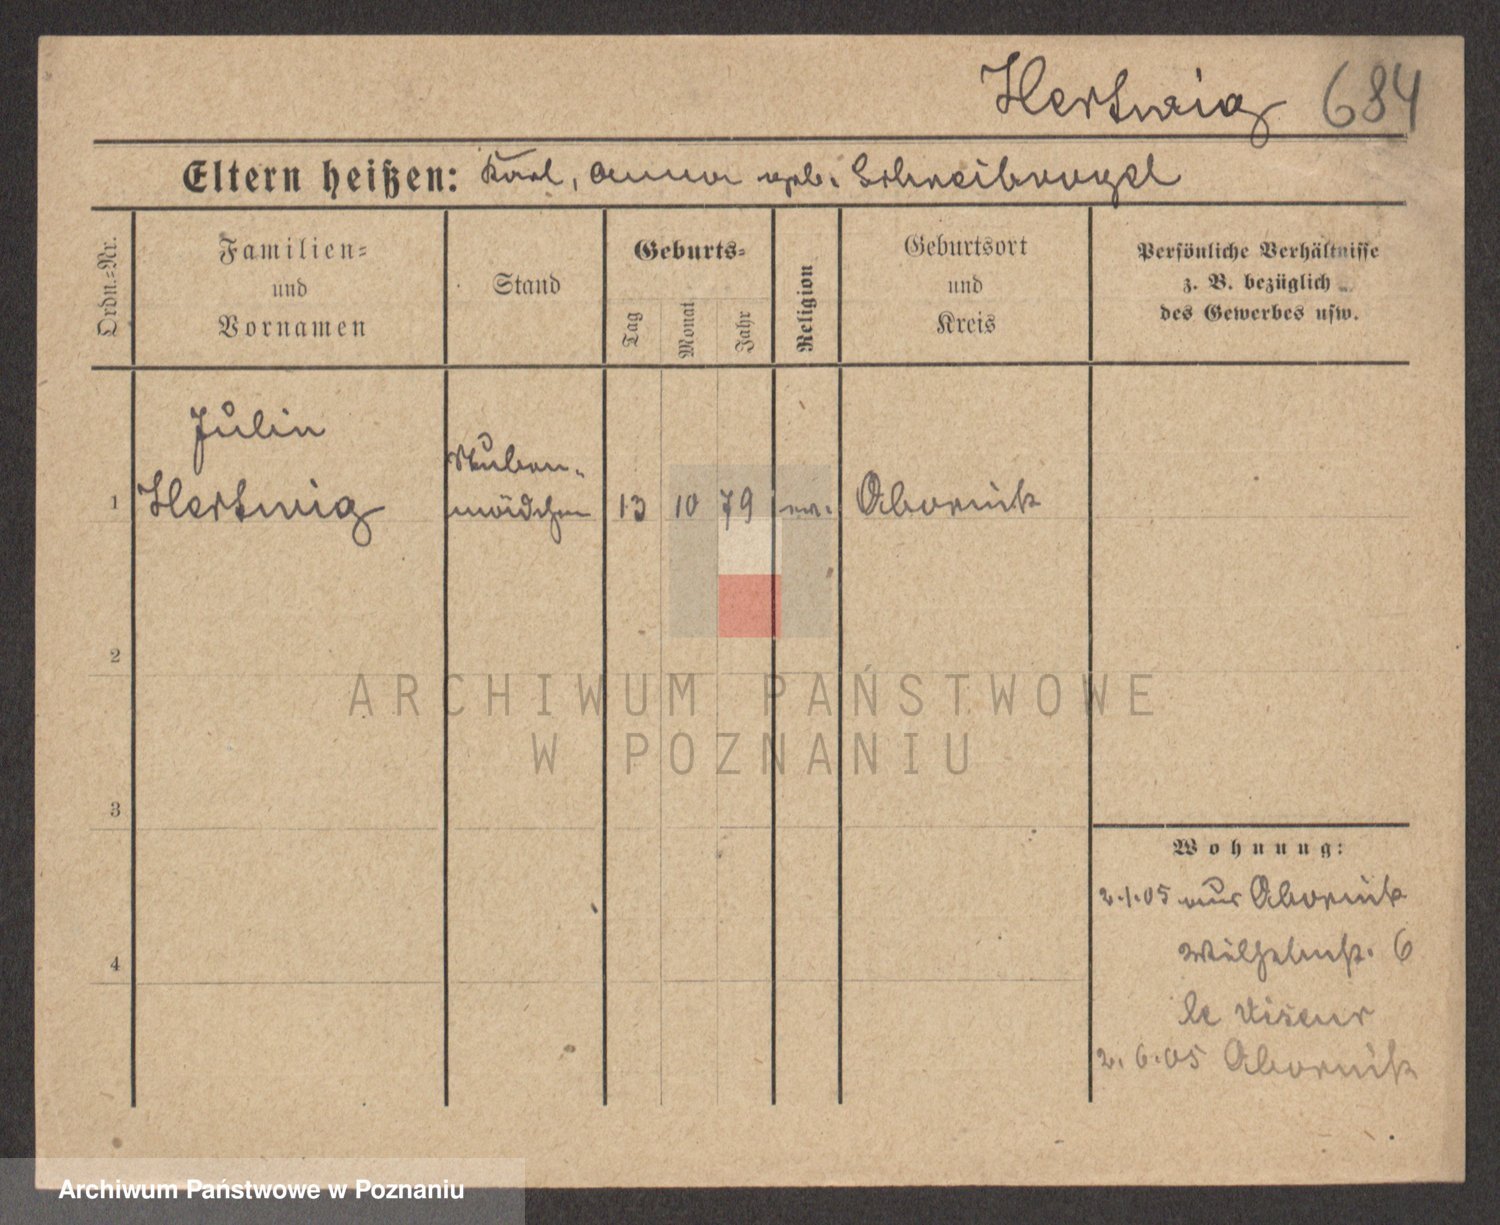 Hertwig 684
Eltern heißen: Karl, Anna geb. Schreibvogel
Ordn.=Nr.
Familien=
und
Vornamen
Stand
Geburts=
Tag
Monat
Jahr
Religion
Geburtsort
und
Kreis
Persönliche Verhältnisse
z. B. bezüglich
des Gewerbes usw.
Julie
Stuben-
1 Hertwig mädchen 13 10 79 ev. Obornik
2
ARCHIWUM PAŃSTWOWE
W POZNANIU
3
Wohnung:
2.1.05 aus Obornik
4
Wilhelmst. 6
le Viseur
2.6.05 Obornik
Archiwum Państwowe w Poznaniu